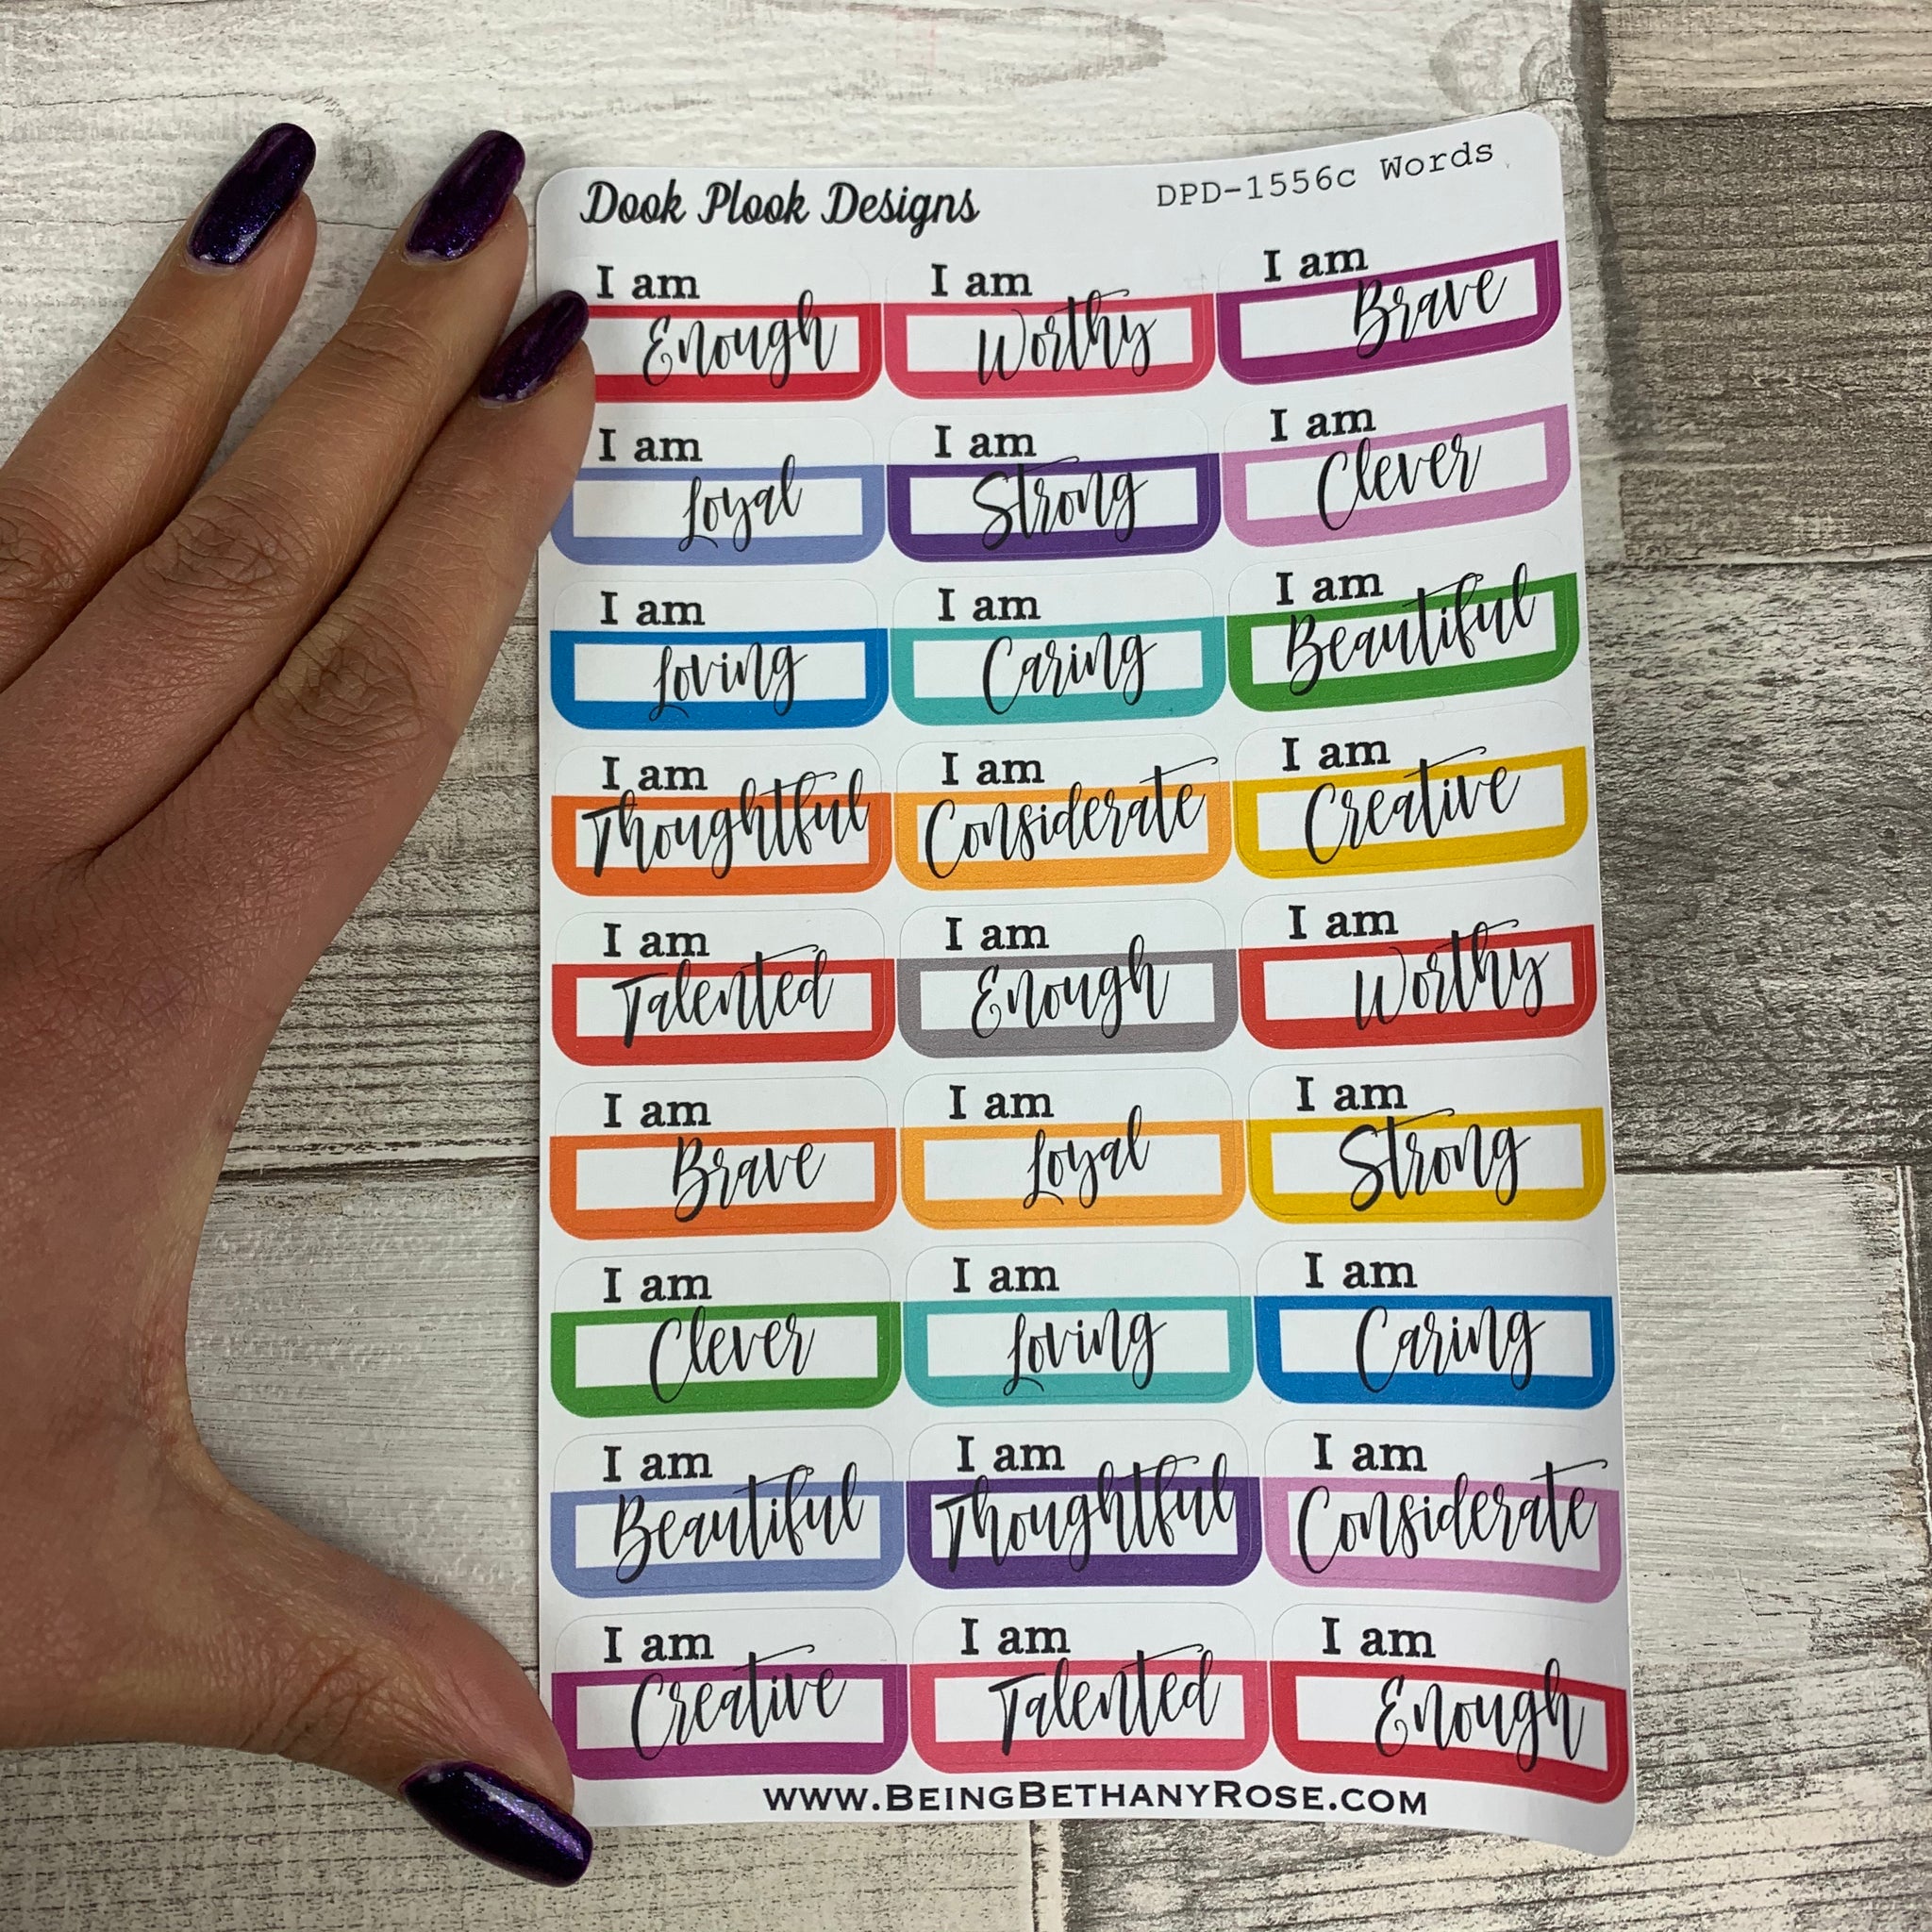 Dook Plook Designs
DPD-1556c Words
I am Enough
I am Worthy
I am Brave
I am Loyal
I am Strong
I am Clever
I am Loving
I am Caring
I am Beautiful
I am Thoughtful
I am Considerate
I am Creative
I am Talented
I am Enough
I am Worthy
I am Brave
I am Loyal
I am Strong
I am Clever
I am Loving
I am Caring
I am Beautiful
I am Thoughtful
I am Considerate
I am Creative
I am Talented
I am Enough
www.BeingBethanyRose.com